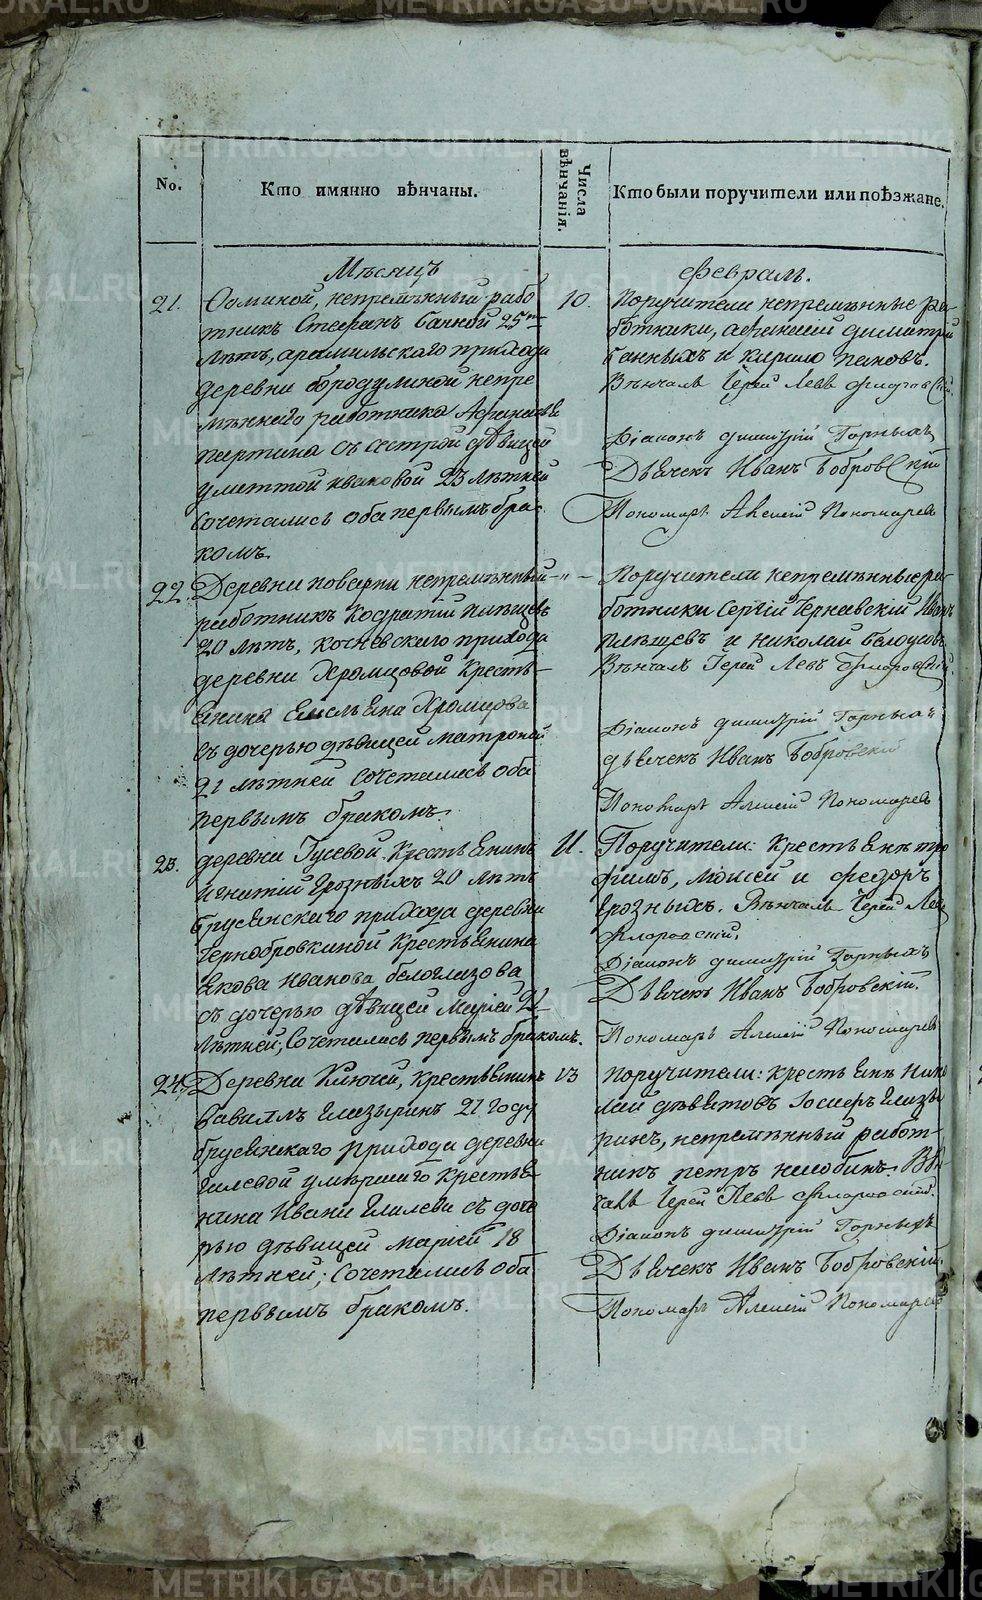 No.
Кто имянно вѣнчаны.
Числа вѣнчанія.
Кто были поручители или поѣзжане.
Мѣсяцъ
февраль.
21.
непремѣнный рабо
тникъ Стефанъ Банной 25ти
лѣтъ, арамильскаго прихода
деревни бородулиной непре
мѣннаго работника
съ сестрой дѣвицей
23 лѣтней
сочетались оба первымъ бра
комъ.
10.
Поручители непремѣнные ра-
ботники, аѳанасій димитрій
банныхъ и кирило пановъ.
Вѣнчалъ Іерей Левъ Флоровскій.
Діаконъ димитрій Горныхъ
Дьячекъ Иванъ Бобровскій
Пономарь Алексій Пономаревъ
22.
Деревни поварни непремѣнный
работникъ Кодратій Плѣщевъ
20 лѣтъ, кочневскаго прихода
деревни Хромцовой Кресть-
янина Емельяна Хромцова
съ дочерью дѣвицей матроной
21 лѣтней сочетались оба
первымъ бракомъ.
- " -
Поручители непремѣнные ра-
ботники Сергій Чернавскій Иванъ
Плѣщевъ и николай белоусовъ
Вѣнчалъ Іерей Левъ Флоровскій.
Діаконъ димитрій Горныхъ
дьячекъ Иванъ Бобровскій
Пономарь Алексій Пономаревъ
23.
деревни Гусевой Крестьянинъ
Игнатій Грозныхъ 20 лѣтъ
брусянскаго прихода деревни
Чернобровкиной Крестьянина
Якова Иванова белоглазова
съ дочерью дѣвицей Маріей 21
лѣтней, Сочетались первымъ бракомъ.
11.
Поручители: Крестьяне тро
фимъ, моисей и федоръ
Грозныхъ. Вѣнчалъ Іерей Левъ
Флоровскій.
Діаконъ димитрій Горныхъ
Дьячекъ Иванъ Бобровскій.
Пономарь Алексій Пономаревъ
24.
Деревни Ключей, крестьянинъ
вавилъ Глазыринъ 21 году
брусянскаго прихода деревни
гилевой умершаго Крестья
нина Ивана Гилева съ доче
рью дѣвицей маріей 18
лѣтней, сочетались оба
первымъ бракомъ.
13
Поручители: крестьяне Нико
лай дѣвятовъ Іосифъ Глазы
ринъ, непремѣнный работ-
никъ петръ нелобинъ. Вѣн
чалъ Іерей Левъ Флоровскій.
Діаконъ димитрій Горныхъ
Дьячекъ Иванъ Бобровскій.
Пономарь Алексій Пономаревъ
METRIKI.GASO-URAL.RU